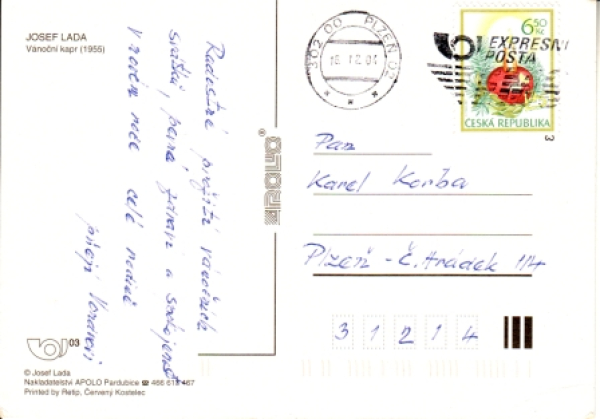 JOSEF LADA
Vánoční kapr (1955)
Radostné prožití vánočních
svátků, pevné zdraví a spokojenost
v novém roce celé rodině
přejí
APOLO
03
© Josef Lada
Nakladatelství APOLO Pardubice ☎ 466 612 467
Printed by Retip, Červený Kostelec
302 00 PLZEŇ 02
12.04
EXPRESNÍ
POŠTA
6,50
Kč
ČESKÁ REPUBLIKA
3
Pan
Karel Korba
Plzeň - Č. Hrádek 114
3 1 2 1 4